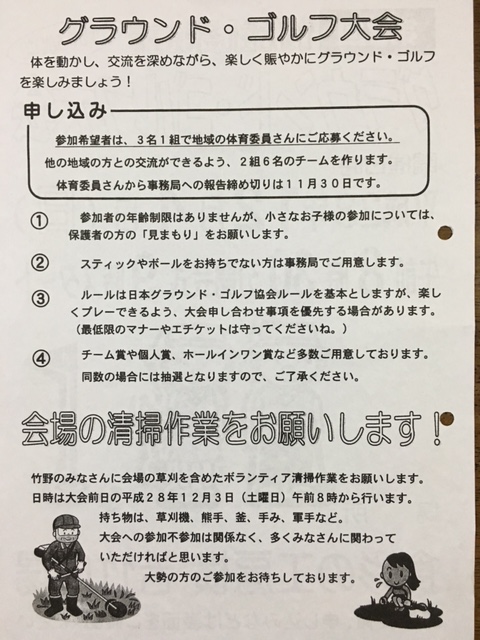 グラウンド・ゴルフ大会
体を動かし、交流を深めながら、楽しく賑やかにグラウンド・ゴルフ
を楽しみましょう！
申し込み
参加希望者は、３名１組で地域の体育委員さんにご応募ください。
他の地域の方との交流ができるよう、２組６名のチームを作ります。
体育委員さんから事務局への報告締め切りは１１月３０日です。
① 参加者の年齢制限はありませんが、小さなお子様の参加については、
保護者の方の「見まもり」をお願いします。
② スティックやボールをお持ちでない方は事務局でご用意します。
③ ルールは日本グラウンド・ゴルフ協会ルールを基本としますが、楽し
くプレーできるよう、大会申し合わせ事項を優先する場合があります。
（最低限のマナーやエチケットは守ってくださいね。）
④ チーム賞や個人賞、ホールインワン賞など多数ご用意しております。
同数の場合には抽選となりますので、ご了承ください。
会場の清掃作業をお願いします！
竹野のみなさんに会場の草刈を含めたボランティア清掃作業をお願いします。
日時は大会前日の平成２８年１２月３日（土曜日）午前８時から行います。
持ち物は、草刈機、熊手、釜、手み、軍手など。
大会への参加不参加は関係なく、多くみなさんに関わって
いただければと思います。
大勢の方のご参加をお待ちしております。